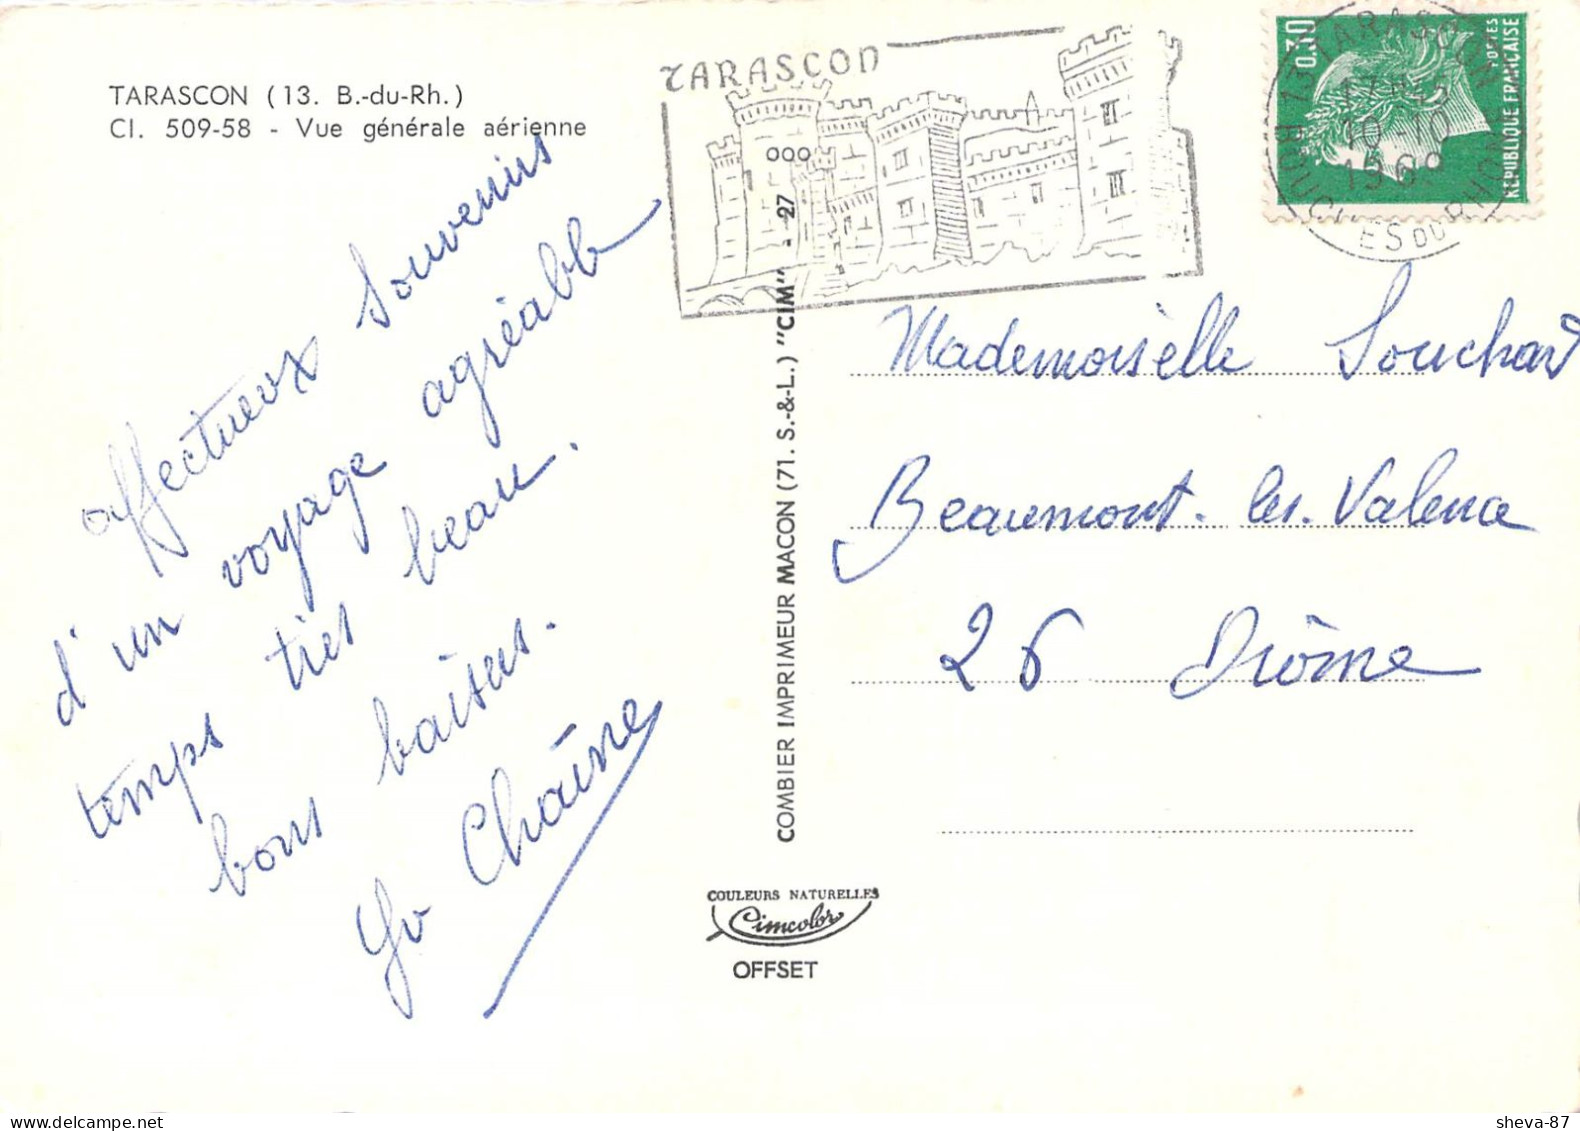 TARASCON (13. B.-du-Rh.)
Cl. 509-58 - Vue générale aérienne
affectueux souvenirs
d'un voyage agréable
temps très beau.
bons baisers.
Yv Chaîne
TARASCON
13 TARASCON
17H45
10-10
1969
BOUCHES DU RHONE
0,30
POSTES
REPUBLIQUE FRANÇAISE
Mademoiselle Souchard
Beaumont. les. Valence
26 Drôme
COMBIER IMPRIMEUR MACON (71. S.-&-L.) "CIM" - 27
COULEURS NATURELLES
Cimcolor
OFFSET
sheva-87